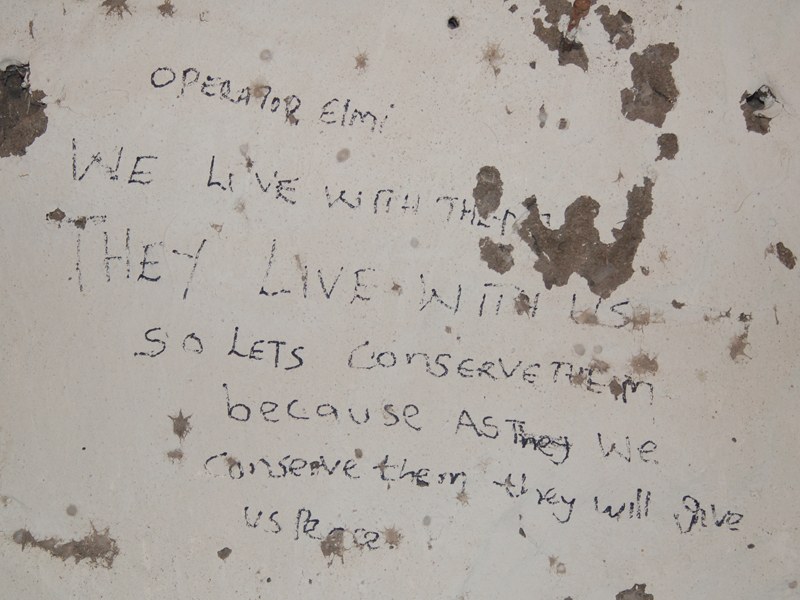 OPERATOR Elmi
WE LIVE WITH THEM
THEY LIVE WITH US
SO LETS CONSERVE THEM
because AS They We
Conserve them they will give
us Peace.